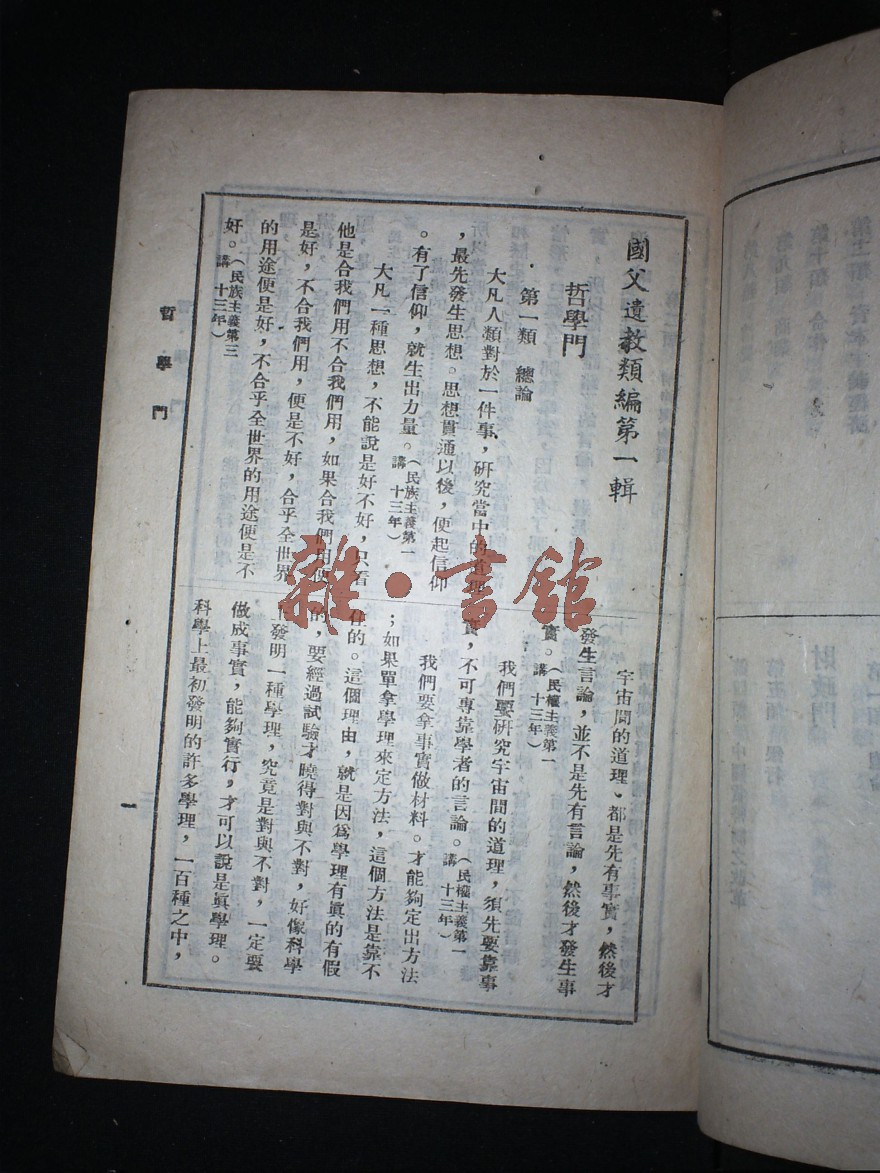 國父遺教類編第一輯
哲學門
第一類　總論
大凡人類對於一件事，研究當中的道理
，最先發生思想。思想貫通以後，便起信仰
。有了信仰，就生出力量。（民族主義第一講　十三年）
大凡一種思想，不能說是好不好，只看
他是合我們用不合我們用，如果合我們用便
是好，不合我們用，便是不好，合乎全世界
的用途便是好，不合乎全世界的用途便是不
好。（民族主義第三講　十三年）
宇宙間的道理，都是先有事實，然後才
發生言論，並不是先有言論，然後才發生事
實。（民權主義第一講　十三年）
我們要研究宇宙間的道理，須先要靠事
實，不可專靠學者的言論。（民權主義第一講　十三年）
我們要拿事實做材料。才能夠定出方法
；如果單拿學理來定方法，這個方法是靠不
住的。這個理由，就是因爲學理有眞的有假
的，要經過試驗才曉得對與不對，好像科學
上發明一種學理，究竟是對與不對，一定要
做成事實，能夠實行，才可以說是眞學理。
科學上最初發明的許多學理，一百種之中，
哲學門
一
雜·書館
財政門